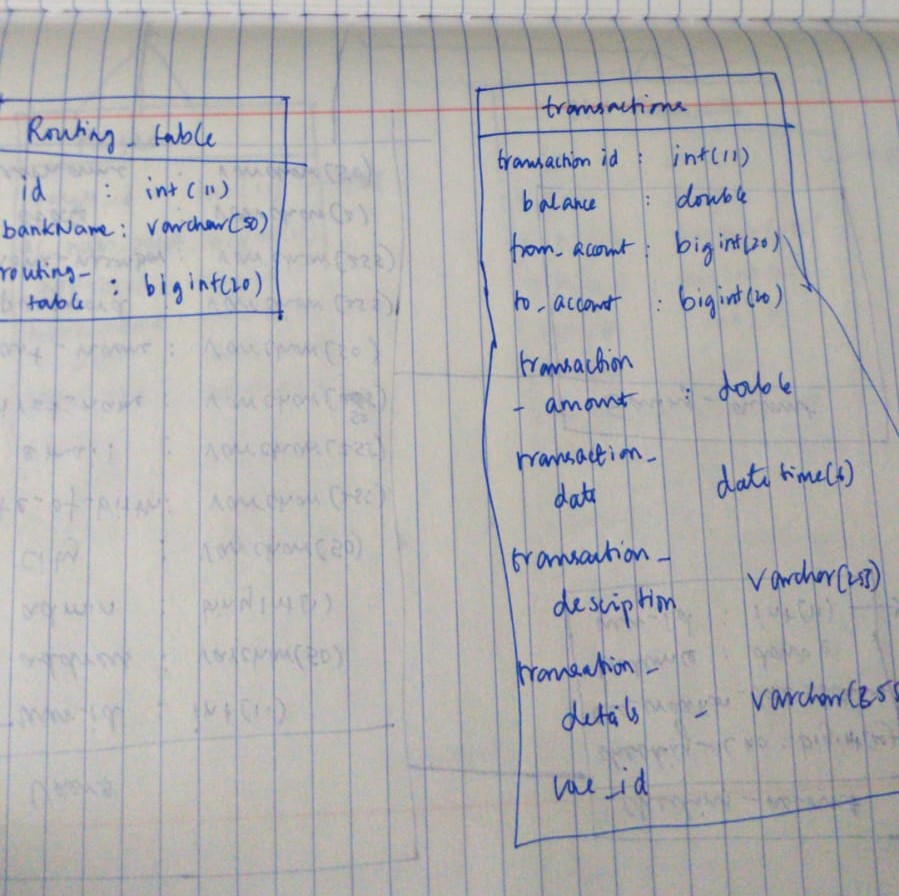 Routing_table
id : int(11)
bankName : varchar(50)
routing_
table : bigint(20)
transactions
transaction id : int(11)
balance : double
from_accont : bigint(20)
to_account : bigint(20)
transaction
- amount : double
transaction_
date datetime(6)
transaction_
desciption varchar(255)
transaction_
details - varchar(255
_id